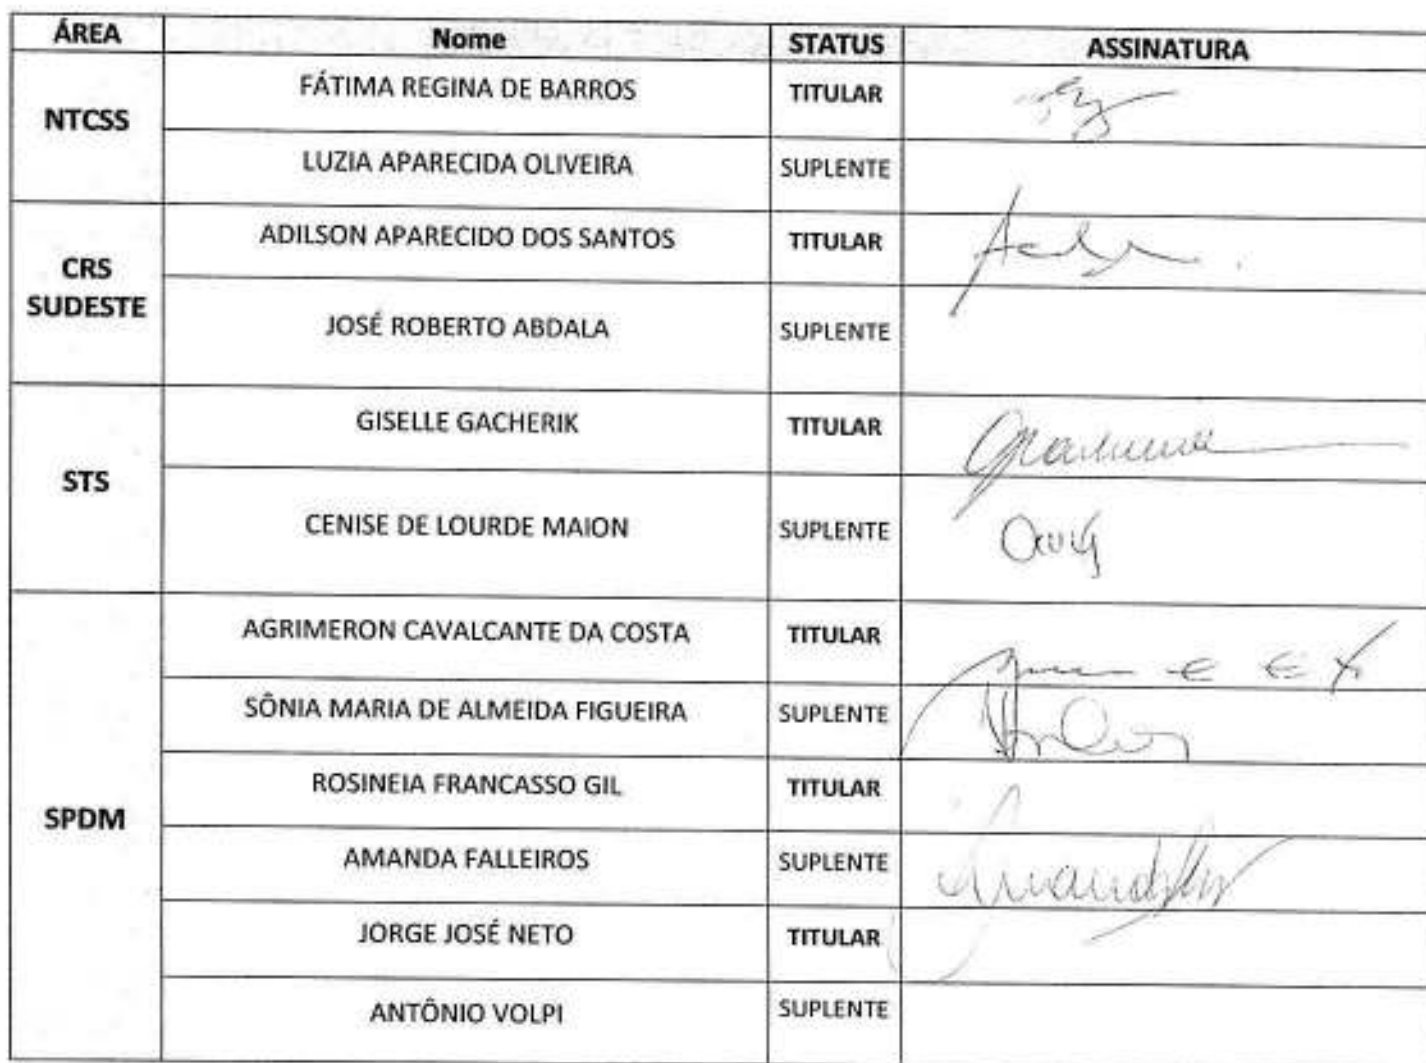 ÁREA Nome STATUS ASSINATURA
NTCSS
FÁTIMA REGINA DE BARROS TITULAR
LUZIA APARECIDA OLIVEIRA SUPLENTE
CRS
SUDESTE
ADILSON APARECIDO DOS SANTOS TITULAR
JOSÉ ROBERTO ABDALA SUPLENTE
STS
GISELLE GACHERIK TITULAR
CENISE DE LOURDE MAION SUPLENTE
SPDM
AGRIMERON CAVALCANTE DA COSTA TITULAR
SÔNIA MARIA DE ALMEIDA FIGUEIRA SUPLENTE
ROSINEIA FRANCASSO GIL TITULAR
AMANDA FALLEIROS SUPLENTE
JORGE JOSÉ NETO TITULAR
ANTÔNIO VOLPI SUPLENTE